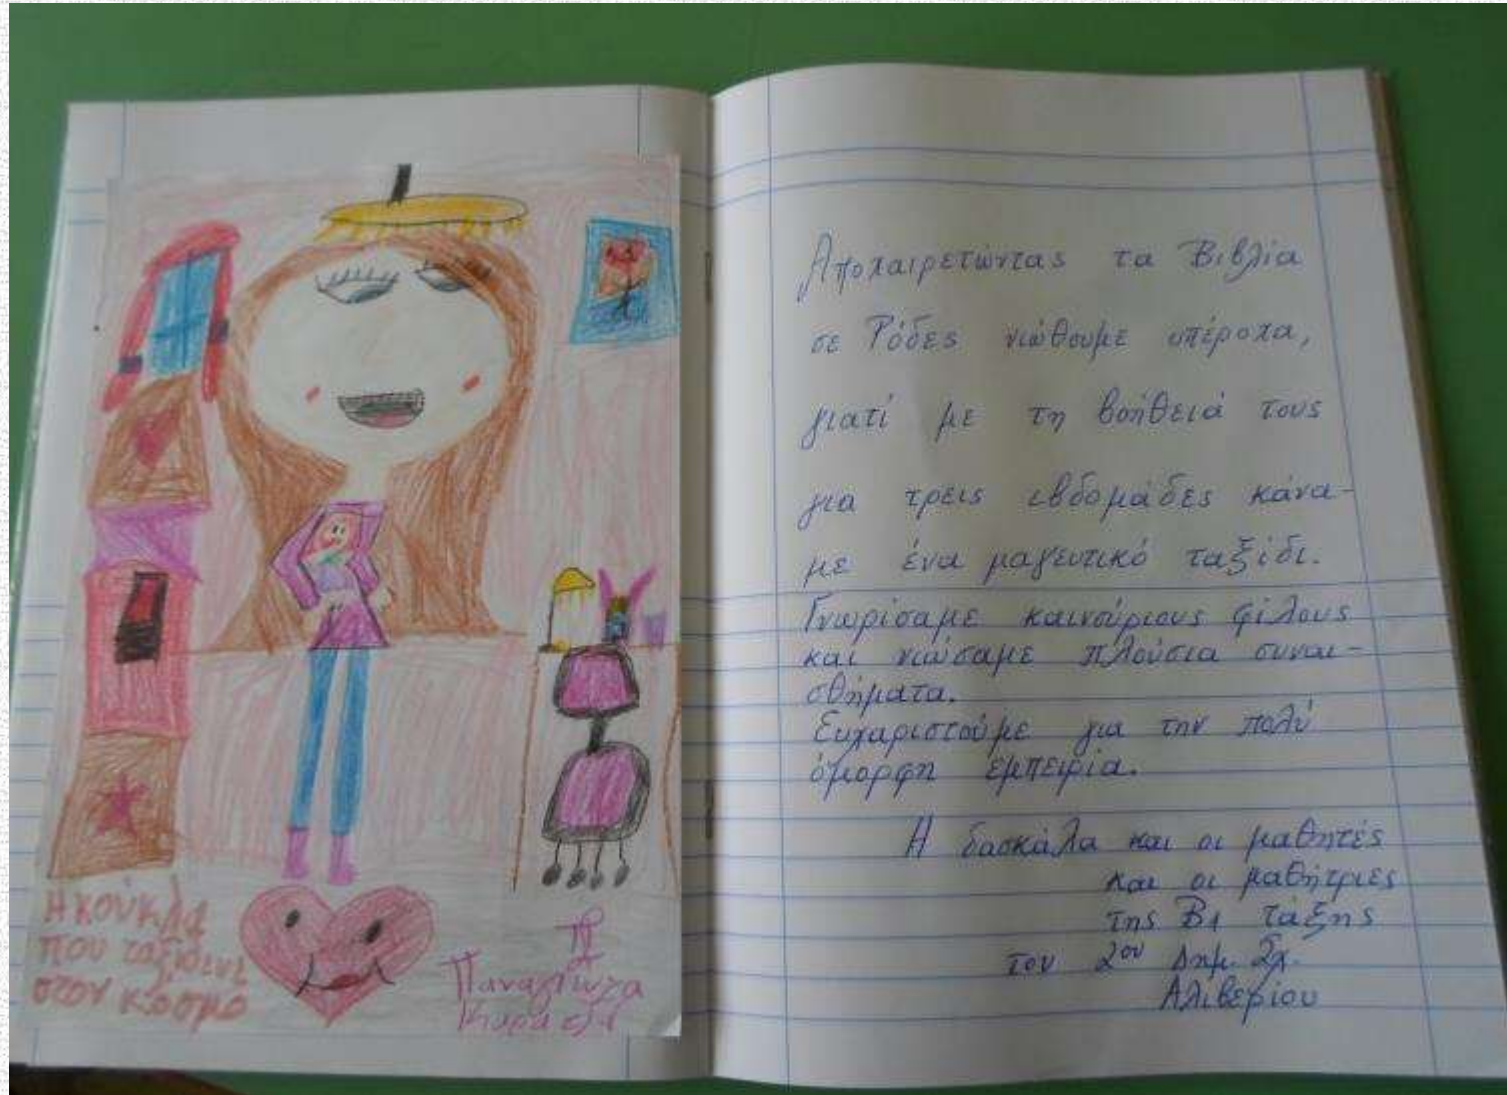 Η κούκλα
που ταξίδευε
στον κόσμο
Παναγιώτα
Αποχαιρετώντας τα Βιβλία
σε Ρόδες νιώθουμε υπέροχα,
γιατί με τη βοήθειά τους
για τρεις εβδομάδες κάνα-
με ένα μαγευτικό ταξίδι.
Γνωρίσαμε καινούριους φίλους
και νιώσαμε πλούσια συναι-
σθήματα.
Ευχαριστούμε για την πολύ
όμορφη εμπειρία.
Η δασκάλα και οι μαθητές
και οι μαθήτριες
της Β1 τάξης
του 2ου Δημ. Σχ.
Αλιβερίου